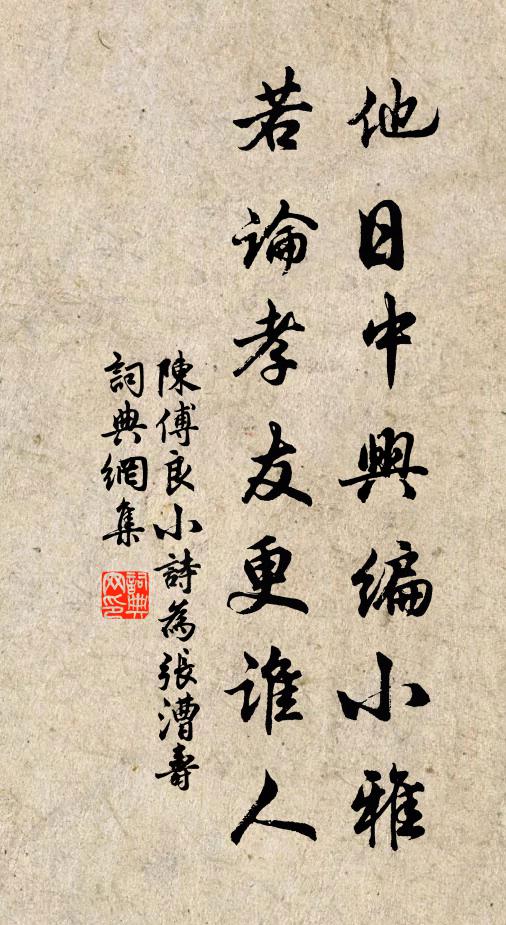 他日中興编小雅
若論孝友更谁人
陳傅良小詩為張漕壽
詞典網集
詞典网印